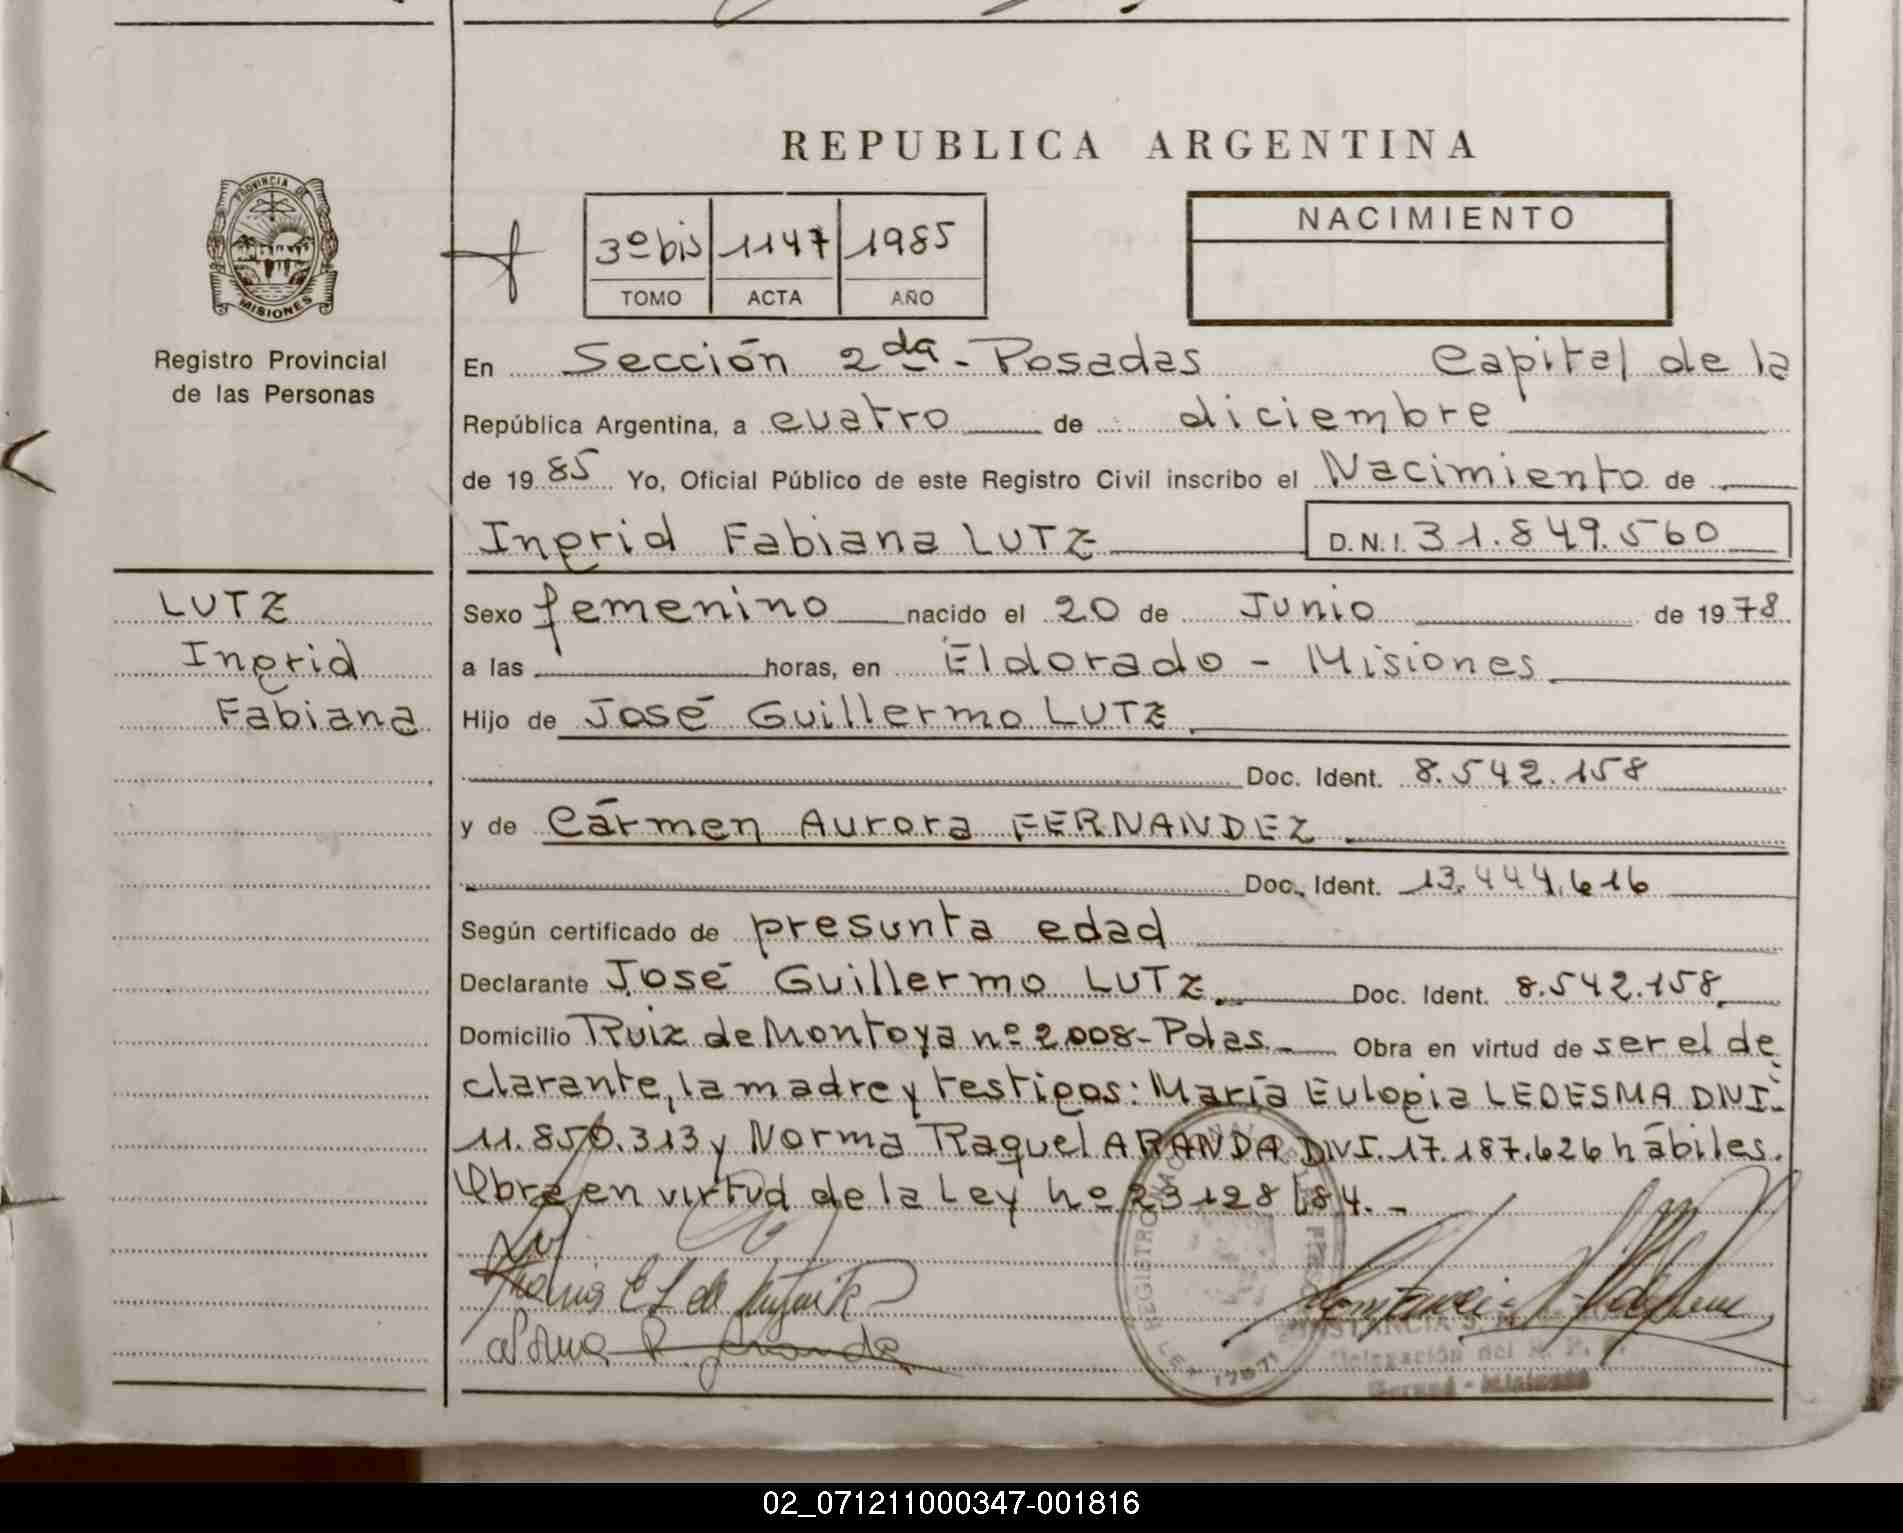 REPUBLICA ARGENTINA
PROVINCIA DE
MISIONES
Registro Provincial
de las Personas
3º bis 1147 1985
TOMO ACTA AÑO
NACIMIENTO
En Sección 2da - Posadas Capital de la
República Argentina, a cuatro de diciembre
de 1985 Yo, Oficial Público de este Registro Civil inscribo el Nacimiento de
Ingrid Fabiana LUTZ D.N.I. 31.849.560
LUTZ
Ingrid
Fabiana
Sexo femenino nacido el 20 de Junio de 1978
a las horas, en Eldorado - Misiones
Hijo de José Guillermo LUTZ
Doc. Ident. 8.542.158
y de Cármen Aurora FERNANDEZ
Doc. Ident. 13.444.616
Según certificado de presunta edad
Declarante José Guillermo LUTZ Doc. Ident. 8.542.158
Domicilio Ruiz de Montoya nº 2008 - Pdas. Obra en virtud de ser el de
clarante, la madre y testigos: María Eulogia LEDESMA DNI.
11.850.313 y Norma Raquel ARANDA DNI. 17.187.626 hábiles.
Obra en virtud de la Ley nº 23128/84. -
REGISTRO NACIONAL
LEY 17671
Delegación del
02_071211000347-001816